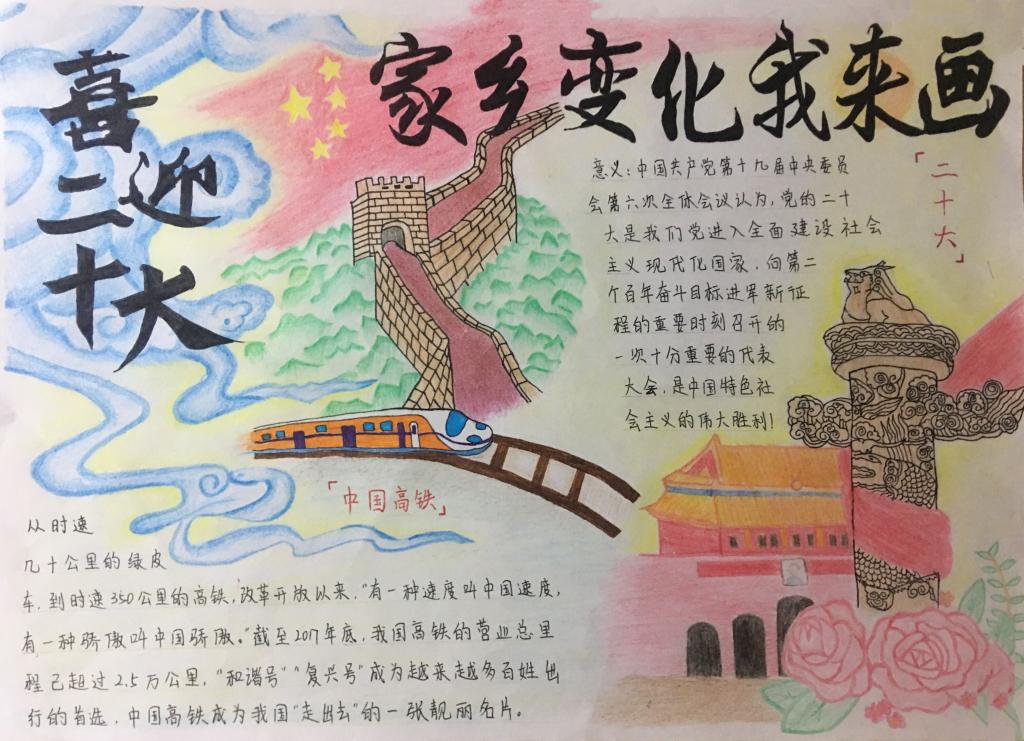 家乡变化我来画
喜迎
二十大
意义:中国共产党第十九届中央委员
会第六次全体会议认为,党的二十
大是我们党进入全面建设社会
主义现代化国家,向第二
个百年奋斗目标进军新征
程的重要时刻召开的
一次十分重要的代表
大会,是中国特色社
会主义的伟大胜利!
「二十大」
「中国高铁」
从时速
几十公里的绿皮
车,到时速350公里的高铁,改革开放以来,“有一种速度叫中国速度,
有一种骄傲叫中国骄傲。”截至2017年底,我国高铁的营业总里
程已超过2.5万公里,“和谐号”“复兴号”成为越来越多百姓出
行的首选,中国高铁成为我国“走出去”的一张靓丽名片。